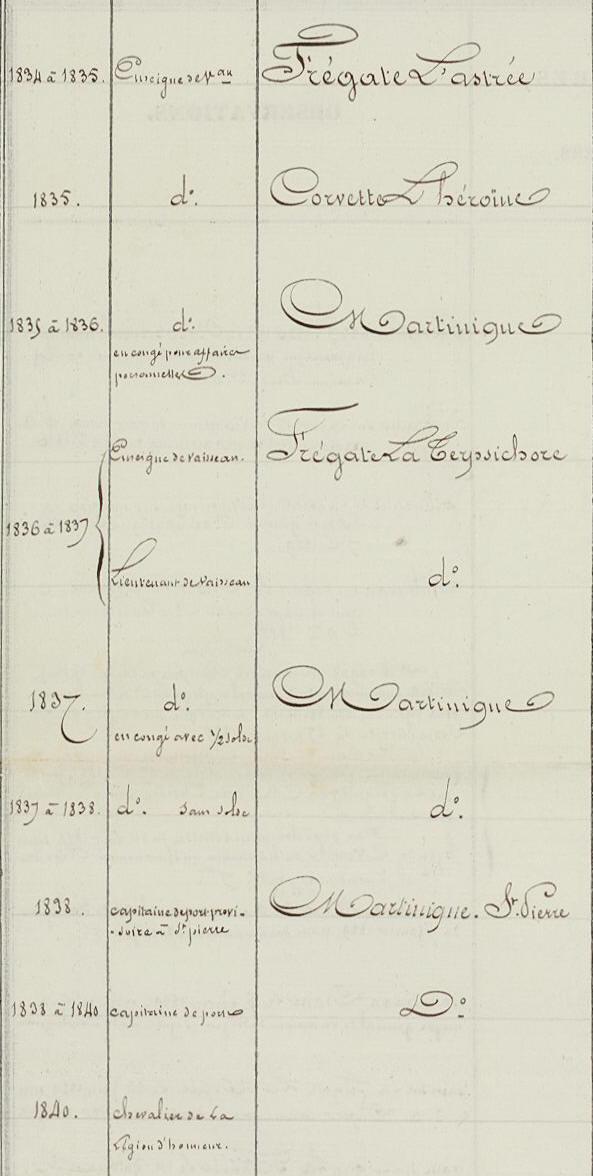 1834 à 1835. Enseigne de Vau Frégate L'astrée
1835. do. Corvette L'héroïne
1835 à 1836. do. Martinique
en congé pour affaires
personnelles.
Enseigne de Vaisseau. Frégate La Terpsichore
1836 à 1837
Lieutenant de Vaisseau do.
1837. do. Martinique
en congé avec 1/2 solde
1837 à 1838. do. sans solde do.
1838. capitaine de port provi-
-soire à St. pierre Martinique. St. Pierre
1838 à 1840 capitaine de port Do.
1840. chevalier de La
Légion d'honneur.